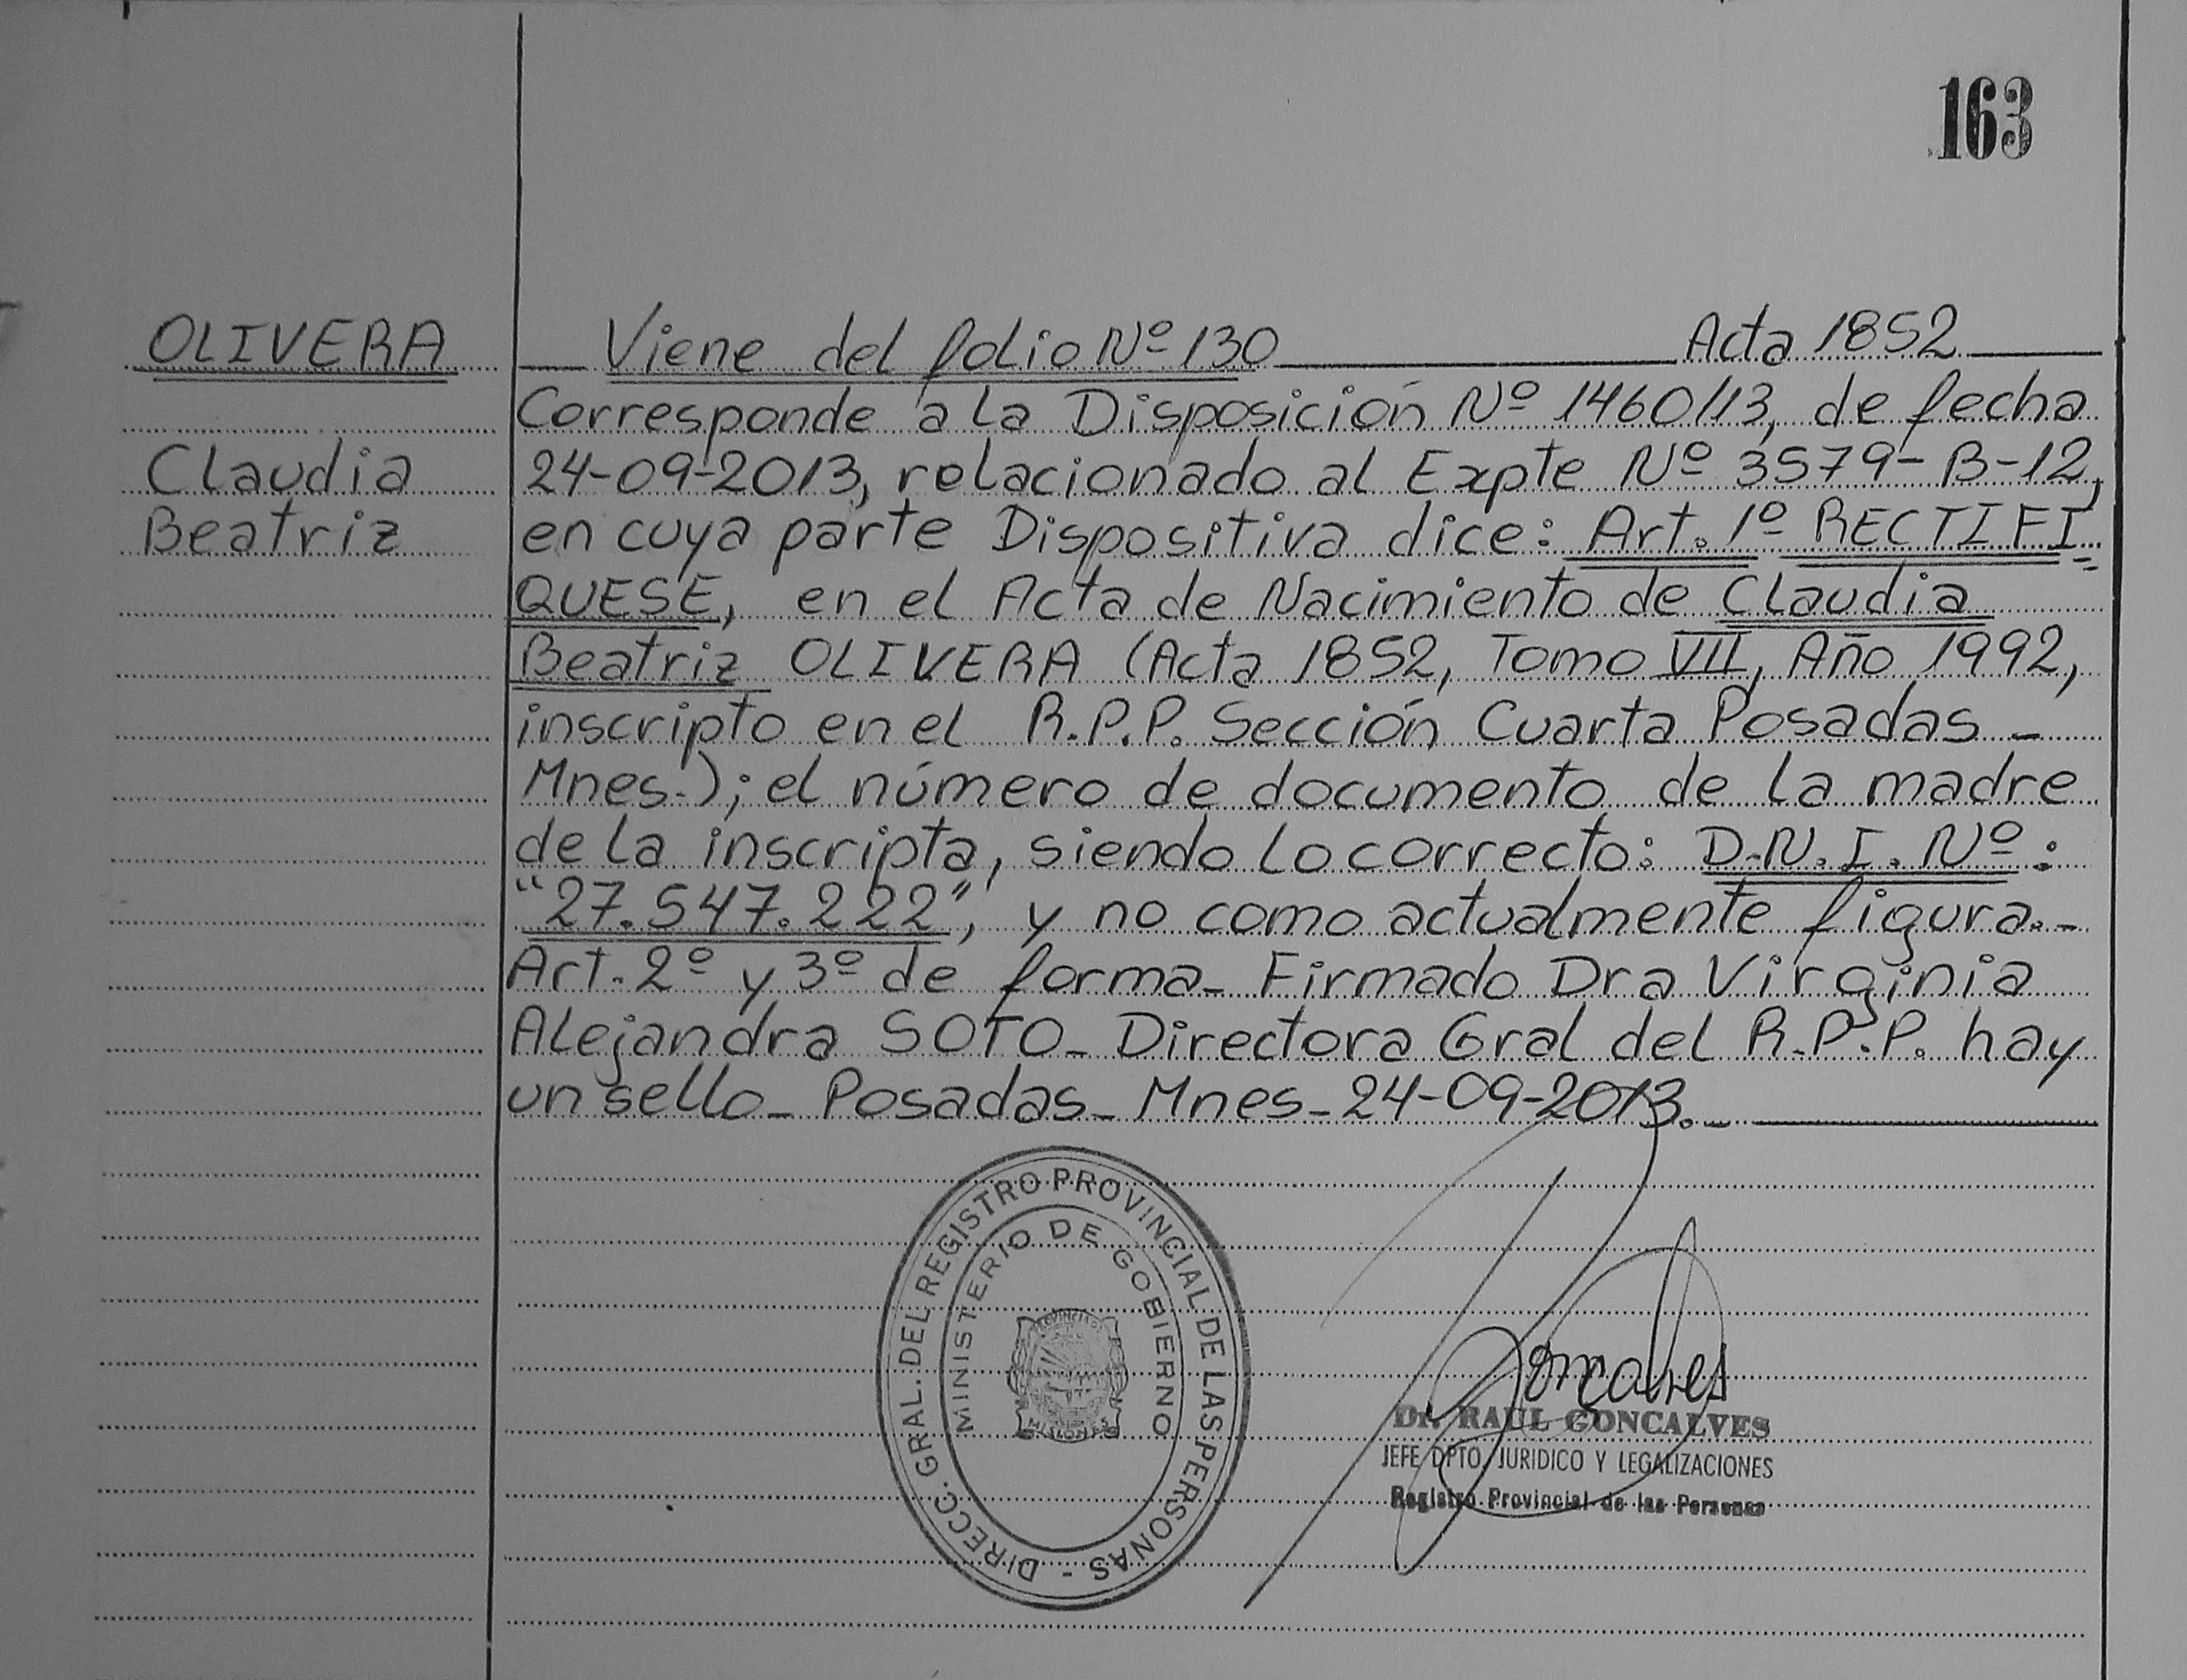 163
OLIVERA
Claudia
Beatriz
Viene del folio Nº 130 Acta 1852
Corresponde a la Disposición Nº 1460/13, de fecha
24-09-2013, relacionado al Expte Nº 3579-B-12,
en cuya parte Dispositiva dice: Art. 1º RECTIFI=
QUESE, en el Acta de Nacimiento de Claudia
Beatriz OLIVERA (Acta 1852, Tomo VII, Año 1992,
inscripto en el R.P.P. Sección Cuarta Posadas -
Mnes.); el número de documento de la madre
de la inscripta, siendo lo correcto: D.N.I. Nº:
"27.547.222", y no como actualmente figura.-
Art. 2º y 3º de forma- Firmado Dra Virginia
Alejandra SOTO- Directora Gral del R.P.P. hay
un sello- Posadas- Mnes- 24-09-2013.-
DIRECC. GRAL. DEL REGISTRO PROVINCIAL DE LAS PERSONAS -
MINISTERIO DE GOBIERNO
PROVINCIA DE
MISIONES
Goncalves
Dr. RAUL GONCALVES
JEFE DPTO. JURIDICO Y LEGALIZACIONES
Registro Provincial de las Personas